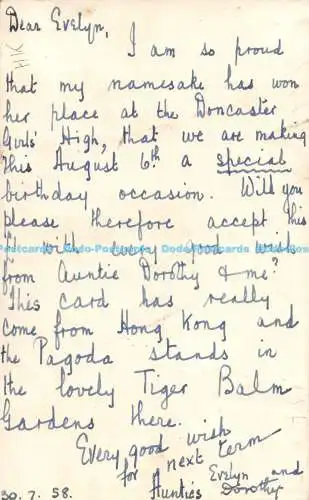 Dear Evelyn,
HK
I am so proud
that my namesake has won
her place at the Doncaster
Girls' High, that we are making
This August 6th a special
birthday occasion. Will you
please therefore accept this
with every good wish
from Auntie Dorothy & me?
This card has really
come from Hong Kong and
the Pagoda stands in
the lovely Tiger Balm
Gardens there.
Every good wish
for next term
Evelyn and
Aunties Dorothy
30.7.58.